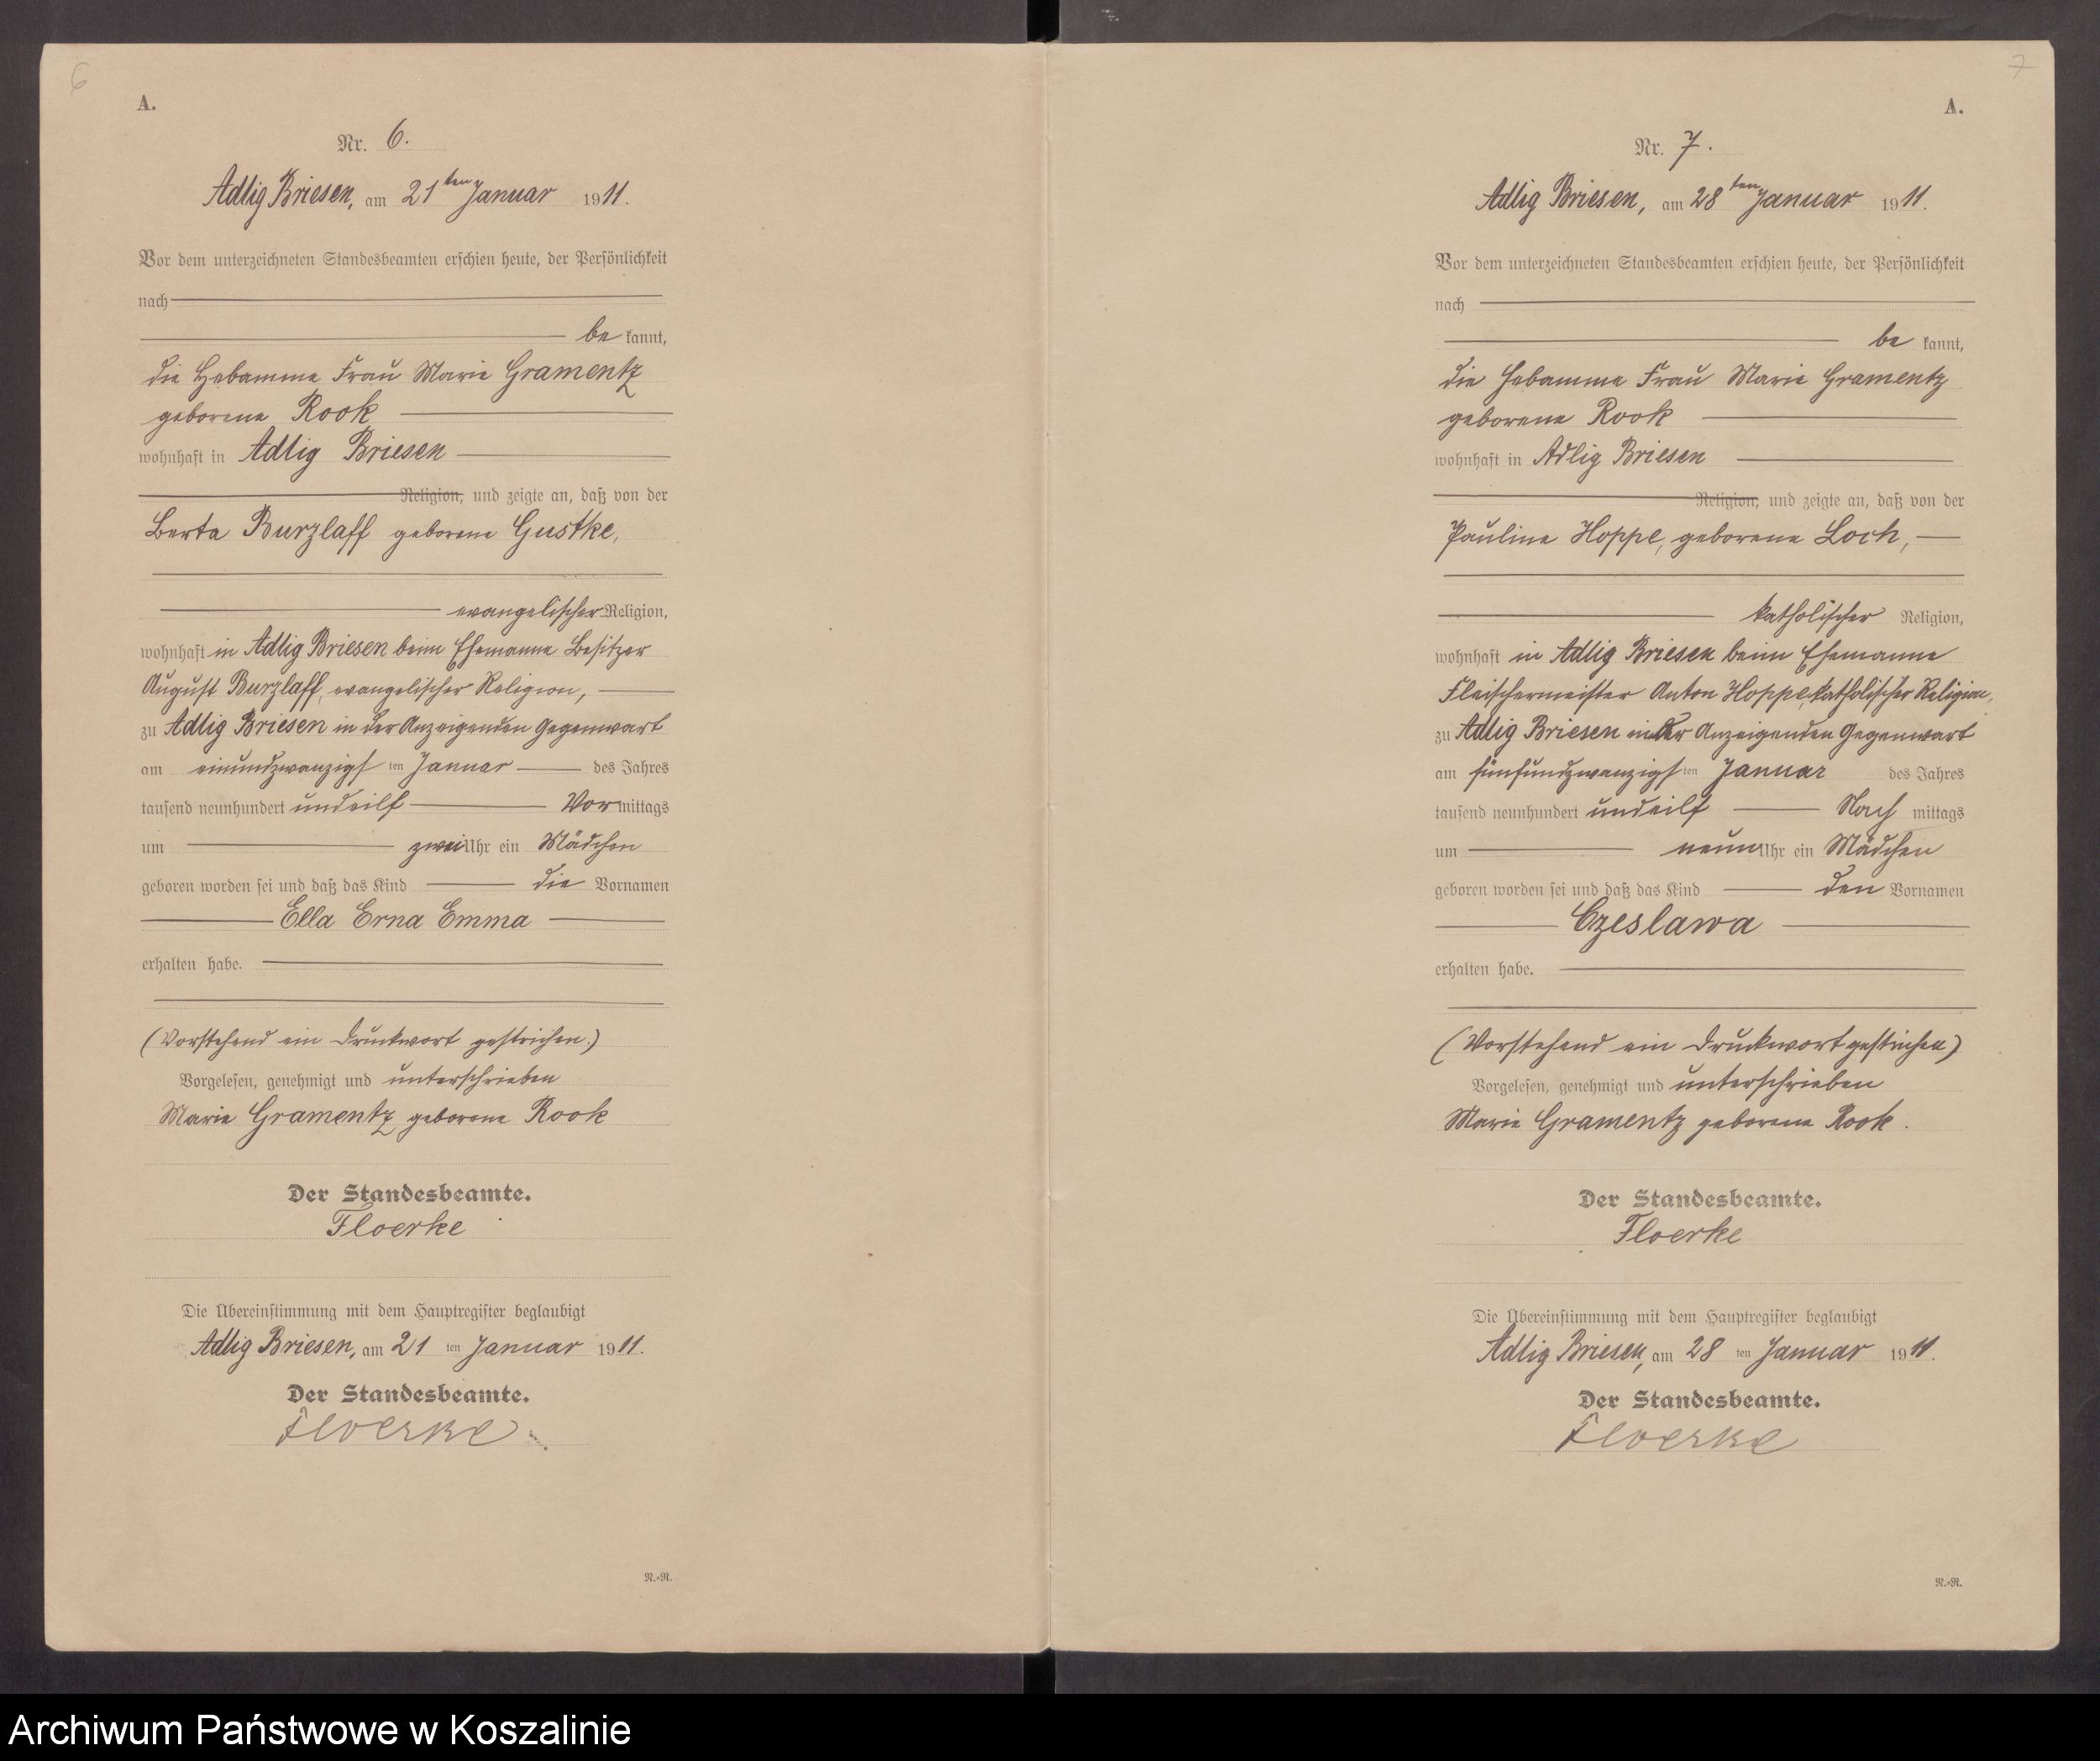 6
A.
Nr. 6.
Adlig Briesen, am 21ten Januar 1911.
Vor dem unterzeichneten Standesbeamten erschien heute, der Persönlichkeit
nach
be kannt,
die Hebamme Frau Marie Gramentz
geborene Rook
wohnhaft in Adlig Briesen
Religion, und zeigte an, daß von der
Berta Burzlaff geborene Gustke,
evangelischer Religion,
wohnhaft in Adlig Briesen beim Ehemanne Besitzer
August Burzlaff, evangelischer Religion,
zu Adlig Briesen in der Anzeigenden Gegenwart
am einundzwanzigsten Januar des Jahres
tausend neunhundert und eilf Vormittags
um zwei Uhr ein Mädchen
geboren worden sei und daß das Kind die Vornamen
Ella Erna Emma
erhalten habe.
(Vorstehend ein Druckwort gestrichen.)
Vorgelesen, genehmigt und unterschrieben
Marie Gramentz geborene Rook
Der Standesbeamte.
Floerke
Die Übereinstimmung mit dem Hauptregister beglaubigt
Adlig Briesen, am 21 ten Januar 1911.
Der Standesbeamte.
Floerke
N.=R.
7
A.
Nr. 7.
Adlig Briesen, am 28ten Januar 1911.
Vor dem unterzeichneten Standesbeamten erschien heute, der Persönlichkeit
nach
be kannt,
die Hebamme Frau Marie Gramentz
geborene Rook
wohnhaft in Adlig Briesen
Religion, und zeigte an, daß von der
Pauline Hoppe, geborene Loch,
katholischer Religion,
wohnhaft in Adlig Briesen beim Ehemanne
Fleischermeister Anton Hoppe, katholischer Religion,
zu Adlig Briesen in der Anzeigenden Gegenwart
am fünfundzwanzigsten Januar des Jahres
tausend neunhundert und eilf Nach mittags
um neun Uhr ein Mädchen
geboren worden sei und daß das Kind den Vornamen
Czeslawa
erhalten habe.
(Vorstehend ein Druckwort gestrichen)
Vorgelesen, genehmigt und unterschrieben
Marie Gramentz geborene Rook.
Der Standesbeamte.
Floerke
Die Übereinstimmung mit dem Hauptregister beglaubigt
Adlig Briesen, am 28 ten Januar 1911.
Der Standesbeamte.
Floerke
N.=R.
Archiwum Państwowe w Koszalinie